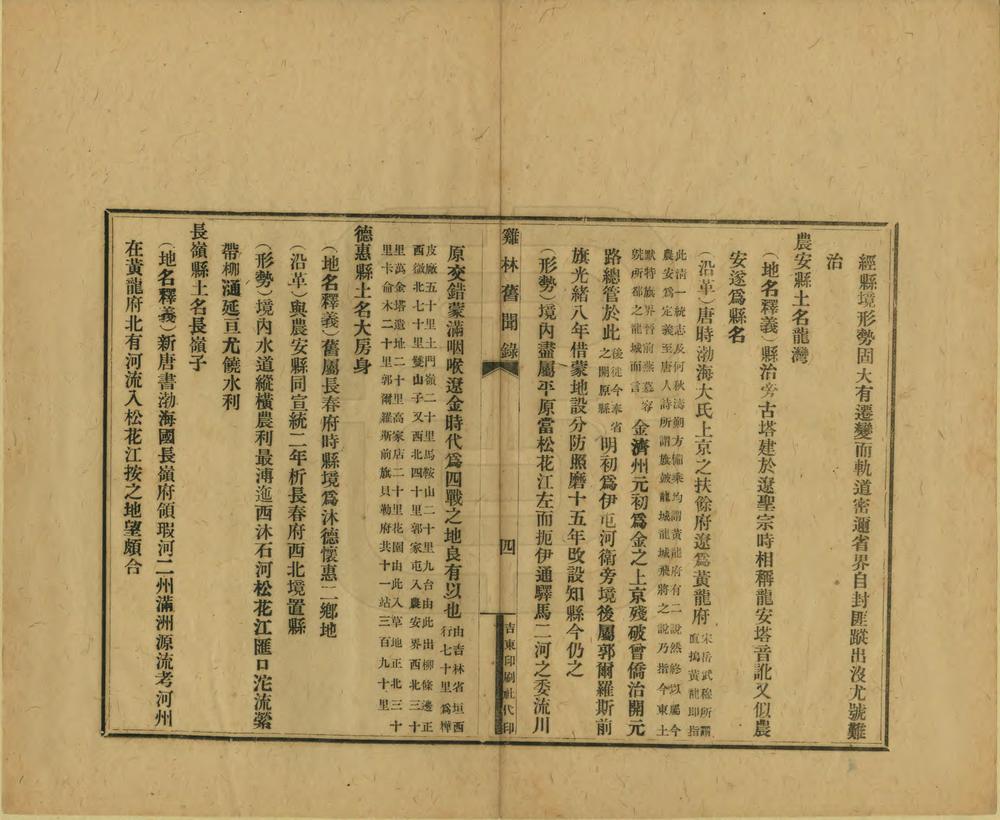 經縣境形勢固大有遷變而軌道密邇省界自封匪蹤出沒尤號難
治
農安縣土名龍灣
(地名釋義)縣治旁古塔建於遼聖宗時相稱龍安塔音訛又似農
安遂爲縣名
(沿革)唐時渤海大氏上京之扶餘府遼爲黃龍府宋岳武穆所謂直搗黃龍即指
此清一統志及何秋濤朔方備乘均謂黃龍府有二說然終以屬今
農安爲定義至唐人詩所謂旗皷龍城龍城飛將之說乃指今東土
默特旗界晉前燕慕容
皝所都之龍城而言
金濟州元初爲金之上京殘破曾僑治開元
路總管於此後徙今奉省之開原縣明初爲伊屯河衛旁境後屬郭爾羅斯前
旗光緒八年借蒙地設分防照磨十五年改設知縣今仍之
(形勢)境內盡屬平原當松花江左而扼伊通驛馬二河之委流川
雞林舊聞錄
四
吉東印刷社代印
原交錯蒙滿咽喉遼金時代爲四戰之地良有以也由吉林省垣西行七十里爲樺
皮廠五十里土門嶺二十里馬鞍山二十里九台由此出柳條邊正
西微北七十里雙山子又西北四十里郭家屯入農安界西北三十
里萬金塔遺址二十里高家店二十里花園由此入草地正北三十
里卡俞木二十里郭爾羅斯前旗貝勒府共十一站三百九十里
德惠縣土名大房身
(地名釋義)舊屬長春府時縣境爲沐德懷惠二鄉地
(沿革)與農安縣同宣統二年析長春府西北境置縣
(形勢)境內水道縱橫農利最溥迤西沐石河松花江匯口沱流縈
帶柳通延亘尤饒水利
長嶺縣土名長嶺子
(地名釋義)新唐書渤海國長嶺府領瑕河二州滿洲源流考河州
在黃龍府北有河流入松花江按之地望頗合